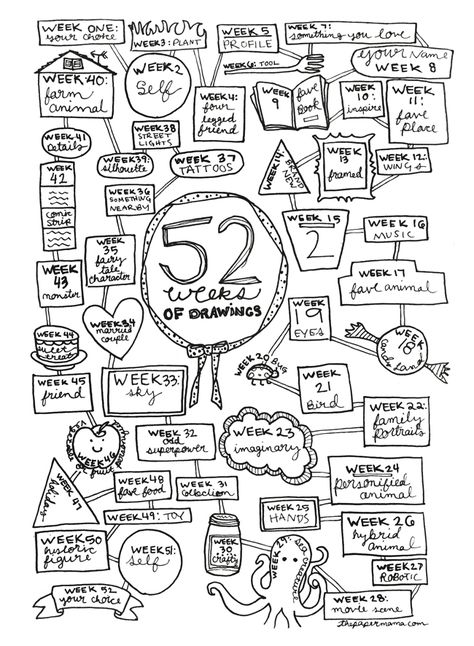 WEEK ONE:
your choice
WEEK 2
Self
WEEK 3: PLANT
WEEK 4:
four
legged
friend
WEEK 5
PROFILE
WEEK 6: TOOL
WEEK 7:
something you love
your Name
WEEK 8
WEEK
9
fave
Book
WEEK
10:
inspire
WEEK
11:
fave
place
WEEK 12:
WINGS
WEEK
13
framed
WEEK 14
BRAND
NEW
WEEK 15
2
WEEK 16
MUSIC
WEEK 17
fave animal
WEEK
18
Candy Land
WEEK
19
EYES
WEEK 20 BUG
WEEK
21
Bird
WEEK 22:
family
portraits
WEEK 23
imaginary
WEEK 24
personified
animal
WEEK 25
HANDS
WEEK 26
hybrid
animal
WEEK 27
ROBOTIC
WEEK 28:
movie scene
WEEK 29:
sea creature
WEEK
30
crafty
WEEK 31
collection
WEEK 32
odd
superpower
WEEK 33:
sky
WEEK 34
married
couple
WEEK
35
fairy
tale
character
WEEK 36
SOMETHING
NEARBY
WEEK 37
TATTOOS
WEEK 38
STREET
LIGHTS
WEEK 39:
silhouette
WEEK 40:
farm
animal
WEEK 41
details
WEEK
42
comic
strip
WEEK
43
monster
WEEK 44
sweet
treat
WEEK 45
friend
WEEK 46
fruit
WEEK 47
holiday
WEEK 48
fave food
WEEK 49: TOY
WEEK 50
historic
figure
WEEK 51:
Self
WEEK 52
your choice
52
weeks
OF DRAWINGS
thepapermama.com